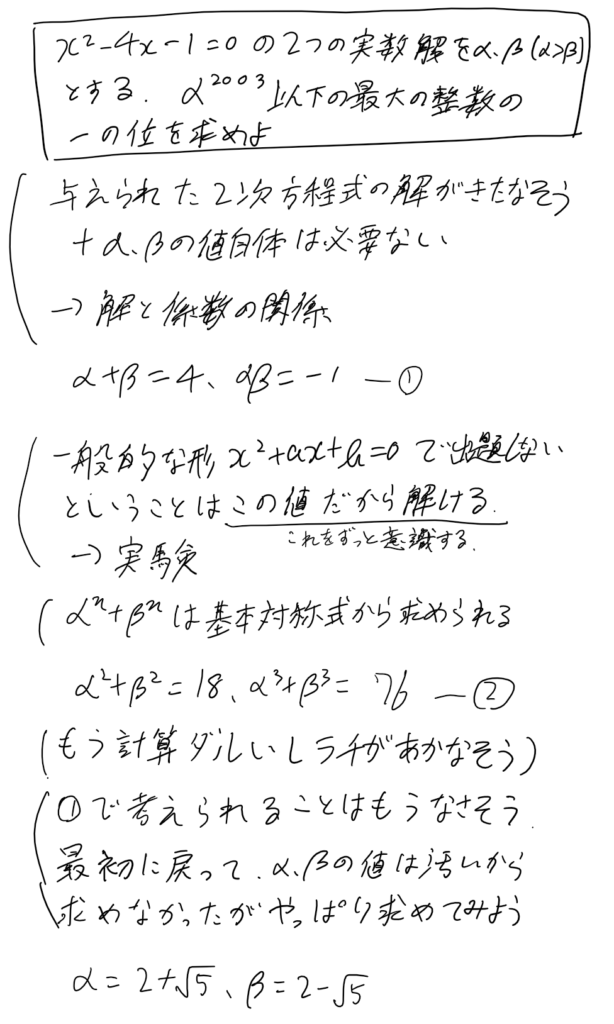 x²-4x-1=0 の2つの実数解をα、β(α>β)
とする. α²⁰⁰³ 以下の最大の整数の
一の位を求めよ
与えられた2次方程式の解がきたなそう
+α、βの値自体は必要ない
→ 解と係数の関係
α+β=4、αβ=-1 ー①
一般的な形 x²+ax+b=0 で出題しない
ということはこの値だから解ける.
これをずっと意識する.
→ 実験
(αⁿ+βⁿは基本対称式から求められる
α²+β²=18、α³+β³= 76 ー②
(もう計算ダルいしラチがあかなそう)
①で考えられることはもうなさそう.
最初に戻って、α、βの値は汚いから
求めなかったがやっぱり求めてみよう
α=2+√5、β=2-√5